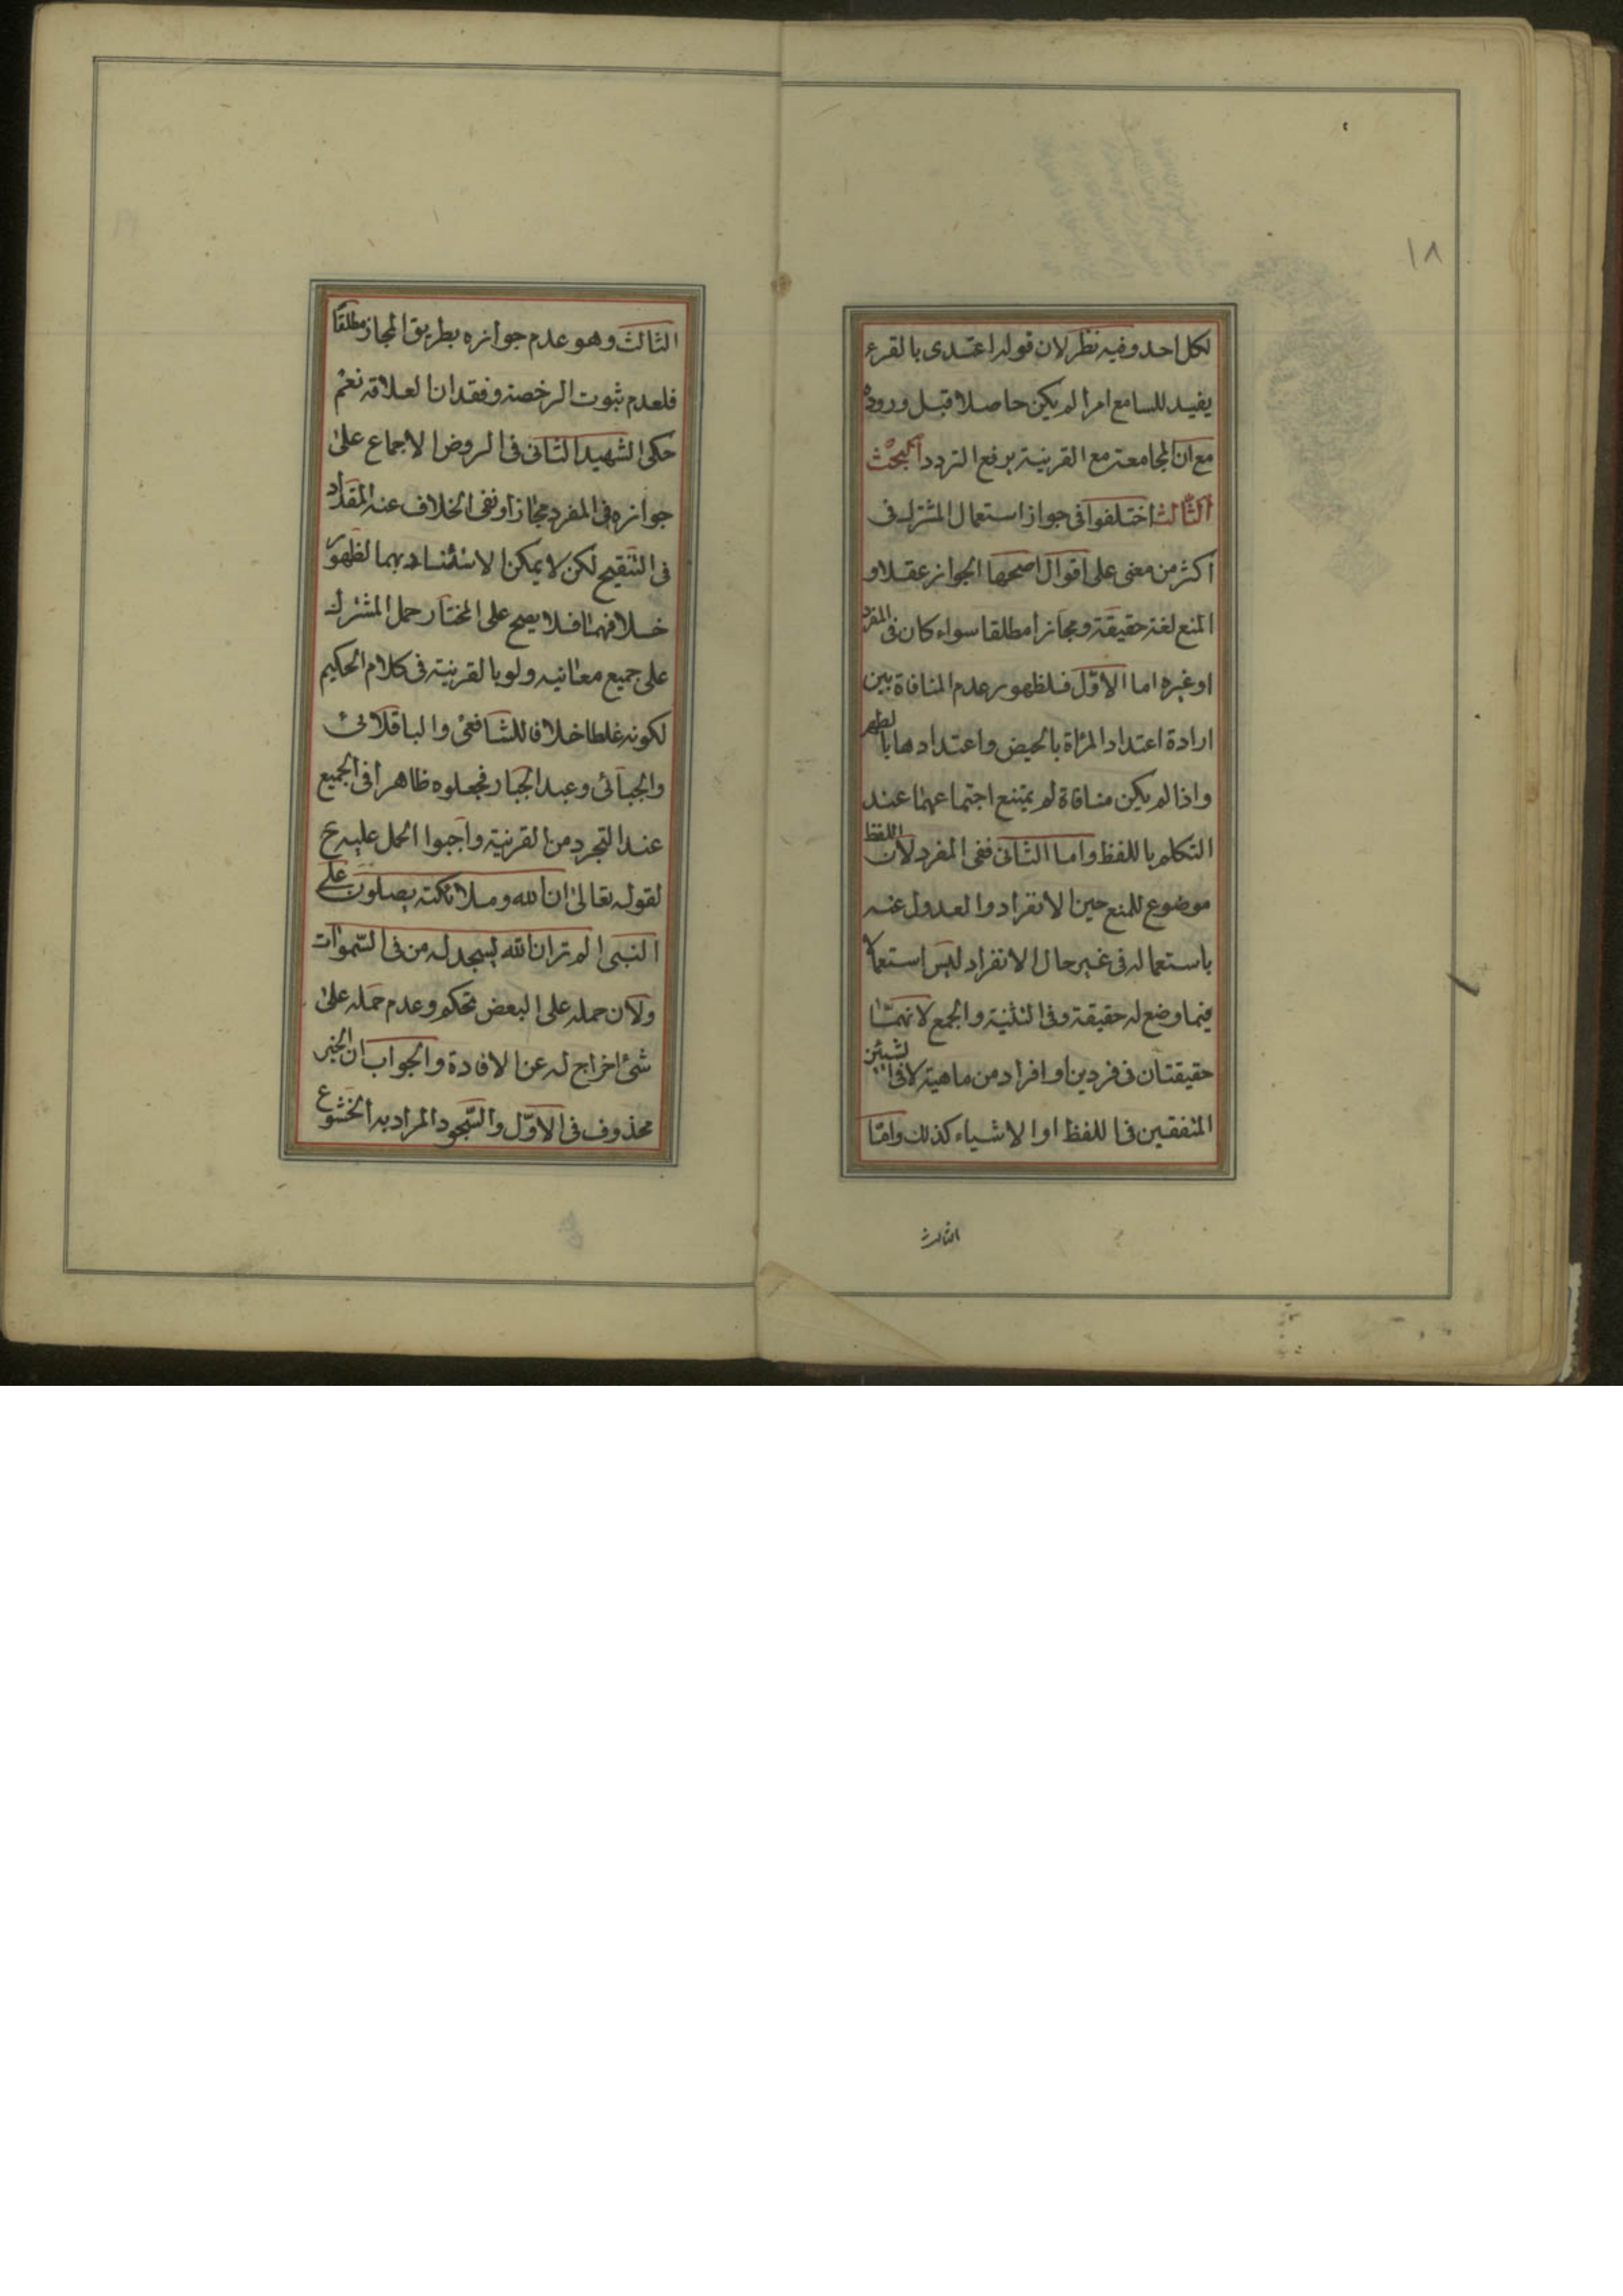 ١٨
لكل احد وفيه نظر لان قوله اعتدى بالقرء
يفيد للسامع امرا لم يكن حاصلا قبل وروده
مع ان المجامعة مع القرينة يرفع التردد البحث
الثالث اختلفوا فى جواز استعمال المشترك فى
اكثر من معنى على اقوال اصحها الجواز عقلا و
المنع لغة حقيقة ومجازا مطلقا سواء كان فى المفرد
او غيره اما الاوّل فلظهور عدم المنافاة بين
ارادة اعتداد المرأة بالحيض واعتدادها بالطهر
واذا لم يكن منافاة لم يمتنع اجتماعهما عند
التكلم باللفظ واما الثانى ففى المفرد لان اللفظ
موضوع للمنع حين الانفراد والعدول عنه
باستعماله فى غير حال الانفراد ليس استعمالا
فيما وضع له حقيقة وفى التثنية والجمع لانهما
حقيقتان فى فردين او افراد من ماهية لا فى الشيئين
المتفقين فى اللفظ او الاشياء كذلك وامّا
الثالث
الثالث وهو عدم جوازه بطريق المجاز مطلقا
فلعدم ثبوت الرخصة وفقدان العلاقة نعم
حكى الشهيد الثانى فى الروض الاجماع على
جوازه فى المفرد مجازا ونفى الخلاف عنه المقداد
فى التنقيح لكن لا يمكن الاستناد بهما لظهور
خلافهما فلا يصح على المختار حمل المشترك
على جميع معانيه ولو بالقرينة فى كلام الحكيم
لكونه غلطا خلافا للشافعى والباقلانى
والجبائى وعبد الجبار فجعلوه ظاهرا فى الجميع
عند التجرد من القرنية واجبوا الحمل عليه ح
لقوله تعالى ان الله وملائكته يصلون على
النبى الم تر ان الله يسجد له من فى السّموات
ولان حمله على البعض تحكم وعدم حمله على
شئ اخراج له عن الافادة والجواب ان الخبر
محذوف فى الاوّل والسّجود المراد به الخشوع